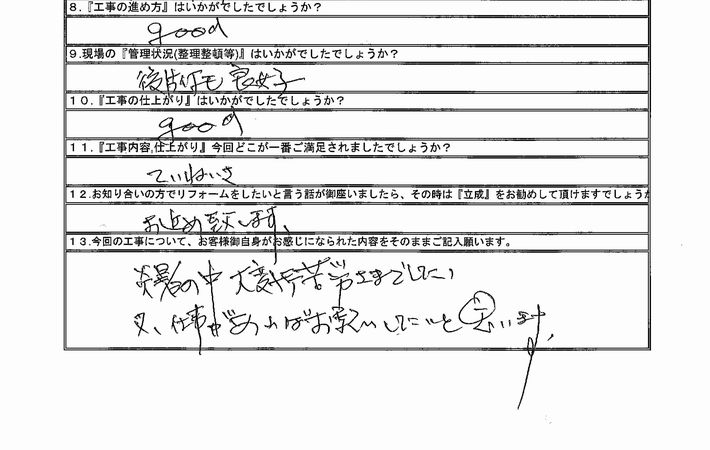 8.『工事の進め方』はいかがでしたでしょうか？
good
9.現場の『管理状況(整理整頓等)』はいかがでしたでしょうか？
後片付も 良好
10.『工事の仕上がり』はいかがでしたでしょうか？
good
11.『工事内容,仕上がり』今回どこが一番ご満足されましたでしょうか？
ていねいさ
12.お知り合いの方でリフォームをしたいと言う話が御座いましたら、その時は『立成』をお勧めして頂けますでしょうか
お進め致します、
13.今回の工事について、お客様御自身がお感じになられた内容をそのままご記入願います。
炎暑の中 大変御苦労さまでした
又、仕事があればお願いしたいと思います。